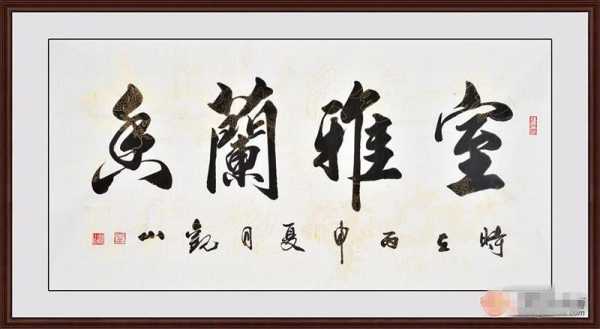 室雅蘭香
時在丙申夏月观山
.com